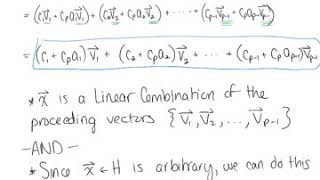 = (C₁V⃗₁ + CₚO₁V⃗₁) + (C₂V⃗₂ + CₚO₂V⃗₂) + ····· + (Cₚ₋₁V⃗ₚ₋₁ + CₚOₚ₋₁V⃗ₚ₋₁)
= (C₁ + CₚO₁)V⃗₁ + (C₂ + CₚO₂)V⃗₂ + ····· + (Cₚ₋₁ + CₚOₚ₋₁)V⃗ₚ₋₁
* x⃗ is a Linear Combination of the
proceeding vectors {V⃗₁, V⃗₂, ..., V⃗ₚ₋₁}
-AND-
* Since x⃗ ∈ H is arbitrary, we can do this